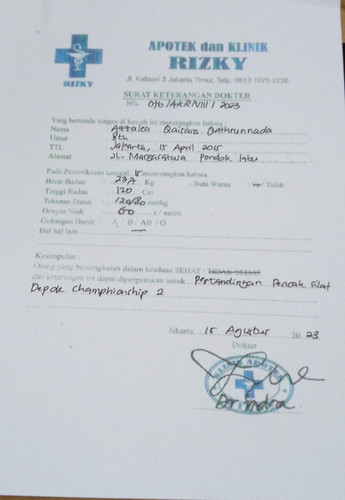 APOTEK dan KLINIK
RIZKY
RIZKY
Jl. Kalisari 3 Jakarta Timur, Telp. 0813 1070 2226
SURAT KETERANGAN DOKTER
NO. /2023
Yang bertanda tangan di bawah ini menerangkan bahwa :
Nama : Qaisara Qathrunnada
Umur : 8th
TTL : Jakarta, 15 April 2015
Alamat : JL. Pondok labu
Pada Pemeriksaan tanggal, 15 menerangkan bahwa
Berat Badan : Kg : Buta Warna : Ya / Tidak
Tinggi Badan : 120 Cm
Tekanan Darah : 120/80 mmhg
Denyut Nadi : 60 x / menit
Golongan Darah : A / B / AB / O
Hal hal lain : —
Kesimpulan :
Orang yang bersangkutan dalam keadaan SEHAT / TIDAK SEHAT
dan keterangan ini dapat dipergunakan untuk : Pertandingan Pencak Silat
Depok Champhionship 2
Jakarta, 15 Agustus 2023
Dokter
KLINIK APOTEK
RIZKY
Dr. Indra